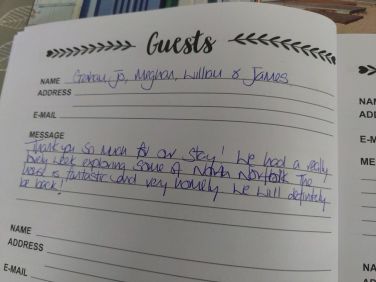 Guests
NAME Graham, Jo, Meghan, Willow & James
ADDRESS
E-MAIL
MESSAGE
Thank you so much for our stay! We had a really
lovely week exploring some of North Norfolk. The
house is fantastic and very homely. We will definitely
be back!
NAME
ADDRESS
E-MAIL
NA
AD
E-
ME
NA